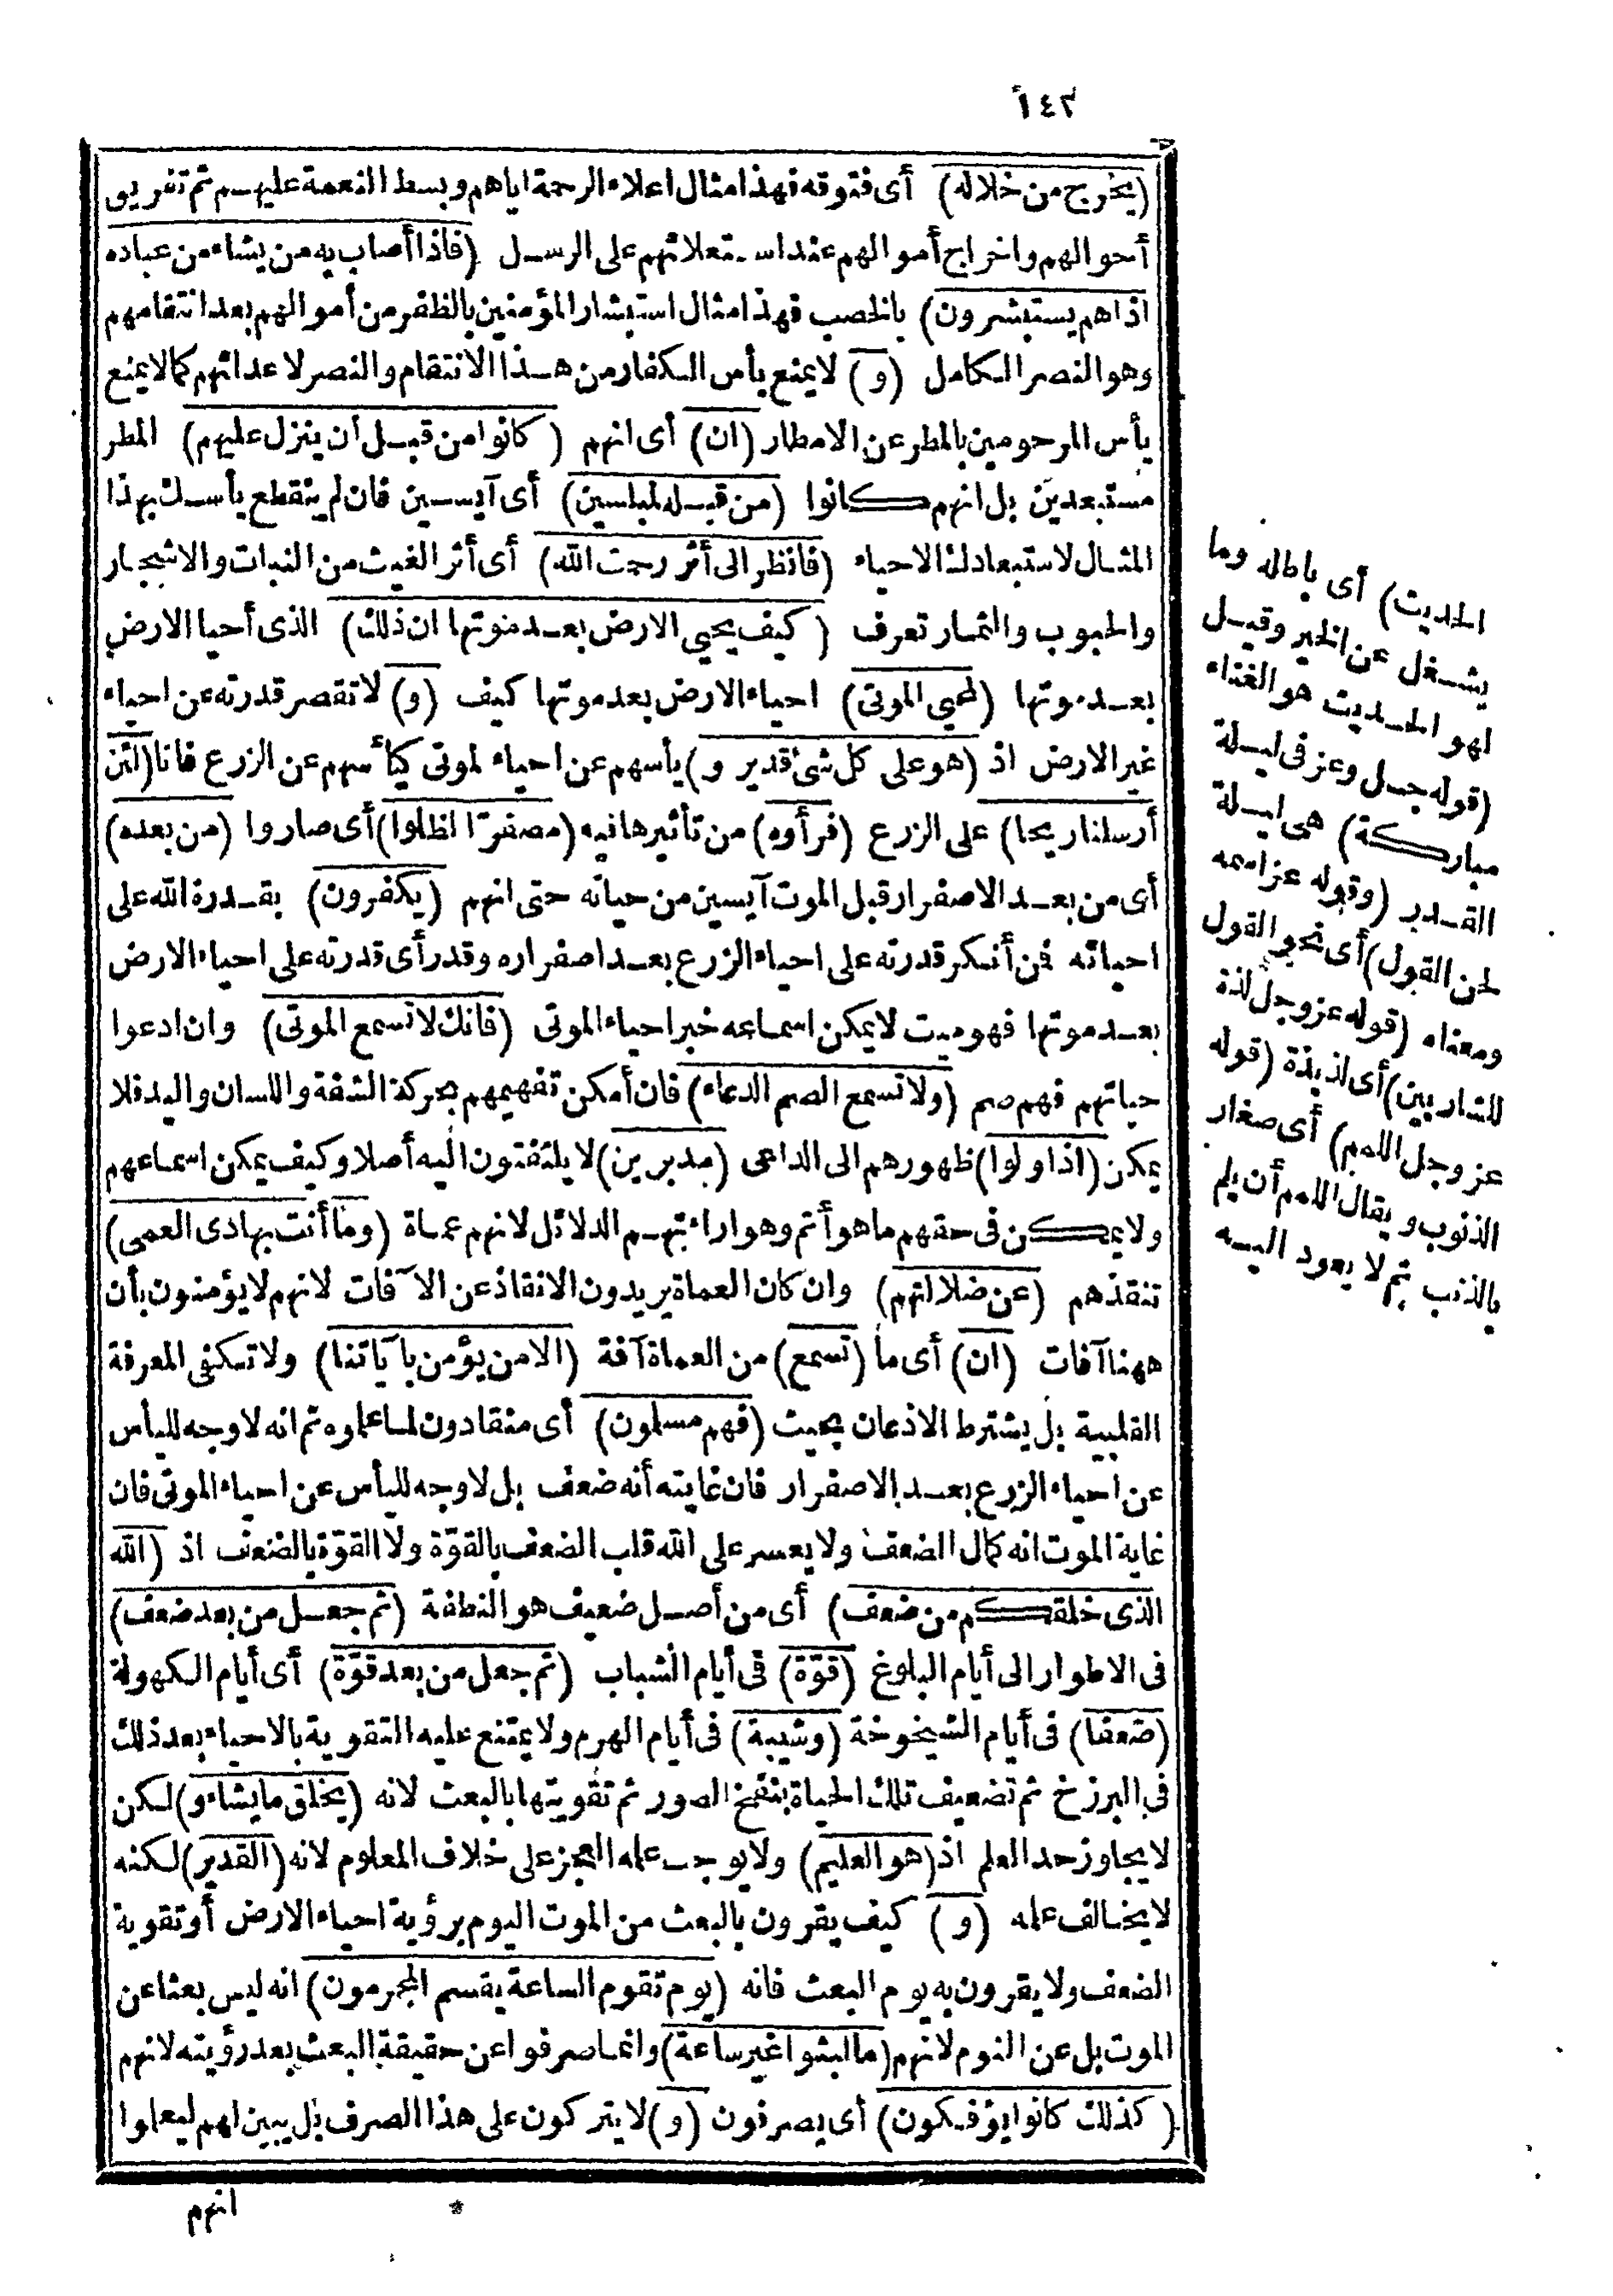 ١٤٢
(يخرج من خلاله) أى فتوقه فهذا مثال اعلاء الرحمة اياهم وبسط النعمة عليهم ثم تفريق
أحوالهم واخراج أموالهم عند استعلائهم على الرسل (فاذا أصاب به من يشاء من عباده
اذا هم يستبشرون) بالخصب فهذا مثال استبشار المؤمنين بالظفر من أموالهم بعد انتقامهم
وهو النصر الكامل (و) لا يمنع يأس الكفار من هذا الانتقام والنصر لاعدائهم كما لا يمنع
يأس المرحومين بالمطر عن الامطار (ان) أى انهم (كانوا من قبل أن ينزل عليهم) المطر
مستبعدين بل انهم كانوا (من قبله لمبلسين) أى آيسين فان لم ينقطع يأسك بهذا
المثال لاستبعادك الاحياء (فانظر الى أثر رحمت الله) أى أثر الغيث من النبات والاشجار
والحبوب والثمار تعرف (كيف يحيي الارض بعد موتها ان ذلك) الذى أحيا الارض
بعد موتها (لمحيي الموتى) احياء الارض بعد موتها كيف (و) لا تقصر قدرته عن احياء
غير الارض اذ (هو على كل شئ قدير و) يأسهم عن احياء الموتى كيأسهم عن الزرع فانا (لئن
أرسلنا ريحا) على الزرع (فرأوه) من تأثيرها فيه (مصفرّا لظلوا) أى صاروا (من بعده)
أى من بعد الاصفرار قبل الموت آيسين من حياته حتى انهم (يكفرون) بقدرة الله على
احيائه فمن أنكر قدرته على احياء الزرع بعد اصفراره وقد رأى قدرته على احياء الارض
بعد موتها فهو ميت لا يمكن اسماعه خبر احياء الموتى (فانك لا تسمع الموتى) وان ادعوا
حياتهم فهم صم (ولا تسمع الصم الدعاء) فان أمكن تفهيمهم بحركة الشفة واللسان واليد فلا
يمكن (اذا ولوا) ظهورهم الى الداعى (مدبرين) لا يلتفتون اليه أصلا وكيف يمكن اسماعهم
ولا يمكن فى حقهم ما هو أتم وهو اراءتهم الدلائل لانهم عماة (وما أنت بهادى العمى)
تنقذهم (عن ضلالتهم) وان كان العماة يريدون الانقاذ عن الآفات لانهم لا يؤمنون بأن
ههنا آفات (ان) أى ما (تسمع) من العماة آفة (الا من يؤمن بآياتنا) ولا تكفى المعرفة
القلبية بل يشترط الاذعان بحيث (فهم مسلمون) أى منقادون لما علموه ثم انه لا وجه لليأس
عن احياء الزرع بعد الاصفرار فان غايته أنه ضعف بل لا وجه لليأس عن احياء الموتى فان
غاية الموت انه كمال الضعف ولا يعسر على الله قلب الضعف بالقوّة ولا القوّة بالضعف اذ (الله
الذى خلقكم من ضعف) أى من أصل ضعيف هو النطفة (ثم جعل من بعد ضعف)
فى الاطوار الى أيام البلوغ (قوّة) فى أيام الشباب (ثم جعل من بعد قوّة) أى أيام الكهولة
(ضعفا) فى أيام الشيخوخة (وشيبة) فى أيام الهرم ولا يمتنع عليه التقوية بالاحياء بعد ذلك
فى البرزخ ثم تضعيف تلك الحياة بنفخ الصور ثم تقويتها بالبعث لانه (يخلق ما يشاء و) لكن
لا يجاوز حد العلم اذ (هو العليم) ولا يوجب علمه العجز على خلاف المعلوم لانه (القدير) لكنه
لا يخالف علمه (و) كيف يقرون بالبعث من الموت اليوم برؤية احياء الارض أو تقوية
الضعف ولا يقرون به يوم البعث فانه (يوم تقوم الساعة يقسم المجرمون) انه ليس بعثا عن
الموت بل عن النوم لانهم (ما لبثوا غير ساعة) وانما صرفوا عن حقيقة البعث بعد رؤيته لانهم
(كذلك كانوا يؤفكون) أى يصرفون (و) لا يتركون على هذا الصرف بل يبين لهم ليعلموا
انهم
الحديث) أى باطله وما
يشغل عن الخير وقيل
لهو الحديث هو الغناء
(قوله جل وعز فى ليلة
مباركة) هى ليلة
القدر (وقوله عز اسمه
لحن القول) أى نحو القول
ومعناه (قوله عز وجل لذة
للشاربين) أى لذيذة (قوله
عز وجل اللمم) أى صغار
الذنوب ويقال اللمم أن يلم
بالذنب ثم لا يعود اليه